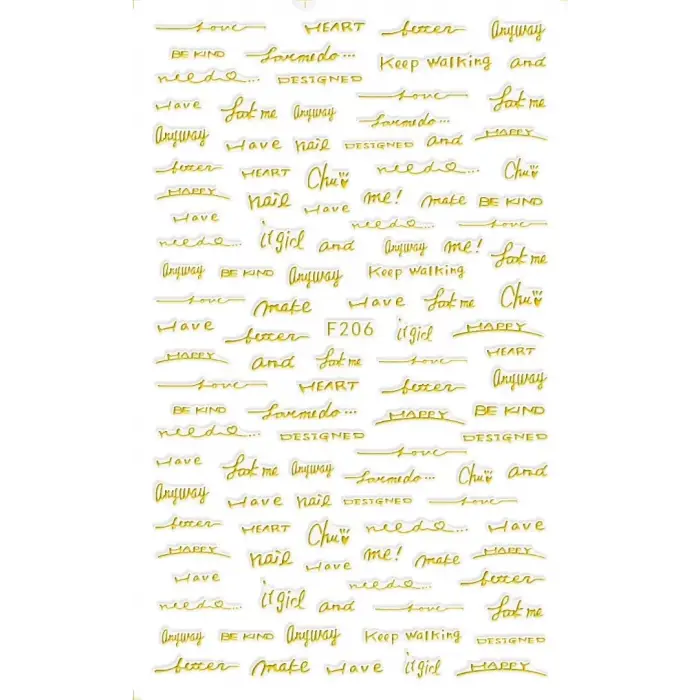 love HEART better Anyway
BE KIND Larmedo... Keep walking and
need... DESIGNED
Have Look me Anyway love Look me
Anyway Have nail Larmedo... DESIGNED and HAPPY
better HEART Chu need... Chu
HAPPY nail Have me! make BE KIND
Have need... love
need... it girl and Anyway me! Look me
Anyway BE KIND Anyway Keep walking
love make Have Look me Chu
Have better F206 it girl HAPPY
HAPPY and Look me love HEART
love HEART better Anyway
BE KIND Larmedo... HAPPY BE KIND
need... DESIGNED love DESIGNED
Have Look me Anyway Larmedo... Chu and
Anyway Have nail DESIGNED love
better HEART Chu need... Have
HAPPY nail Have me! make HAPPY
Have need... better
need... it girl and love Look me
Anyway BE KIND Anyway Keep walking DESIGNED
better make Have it girl HAPPY